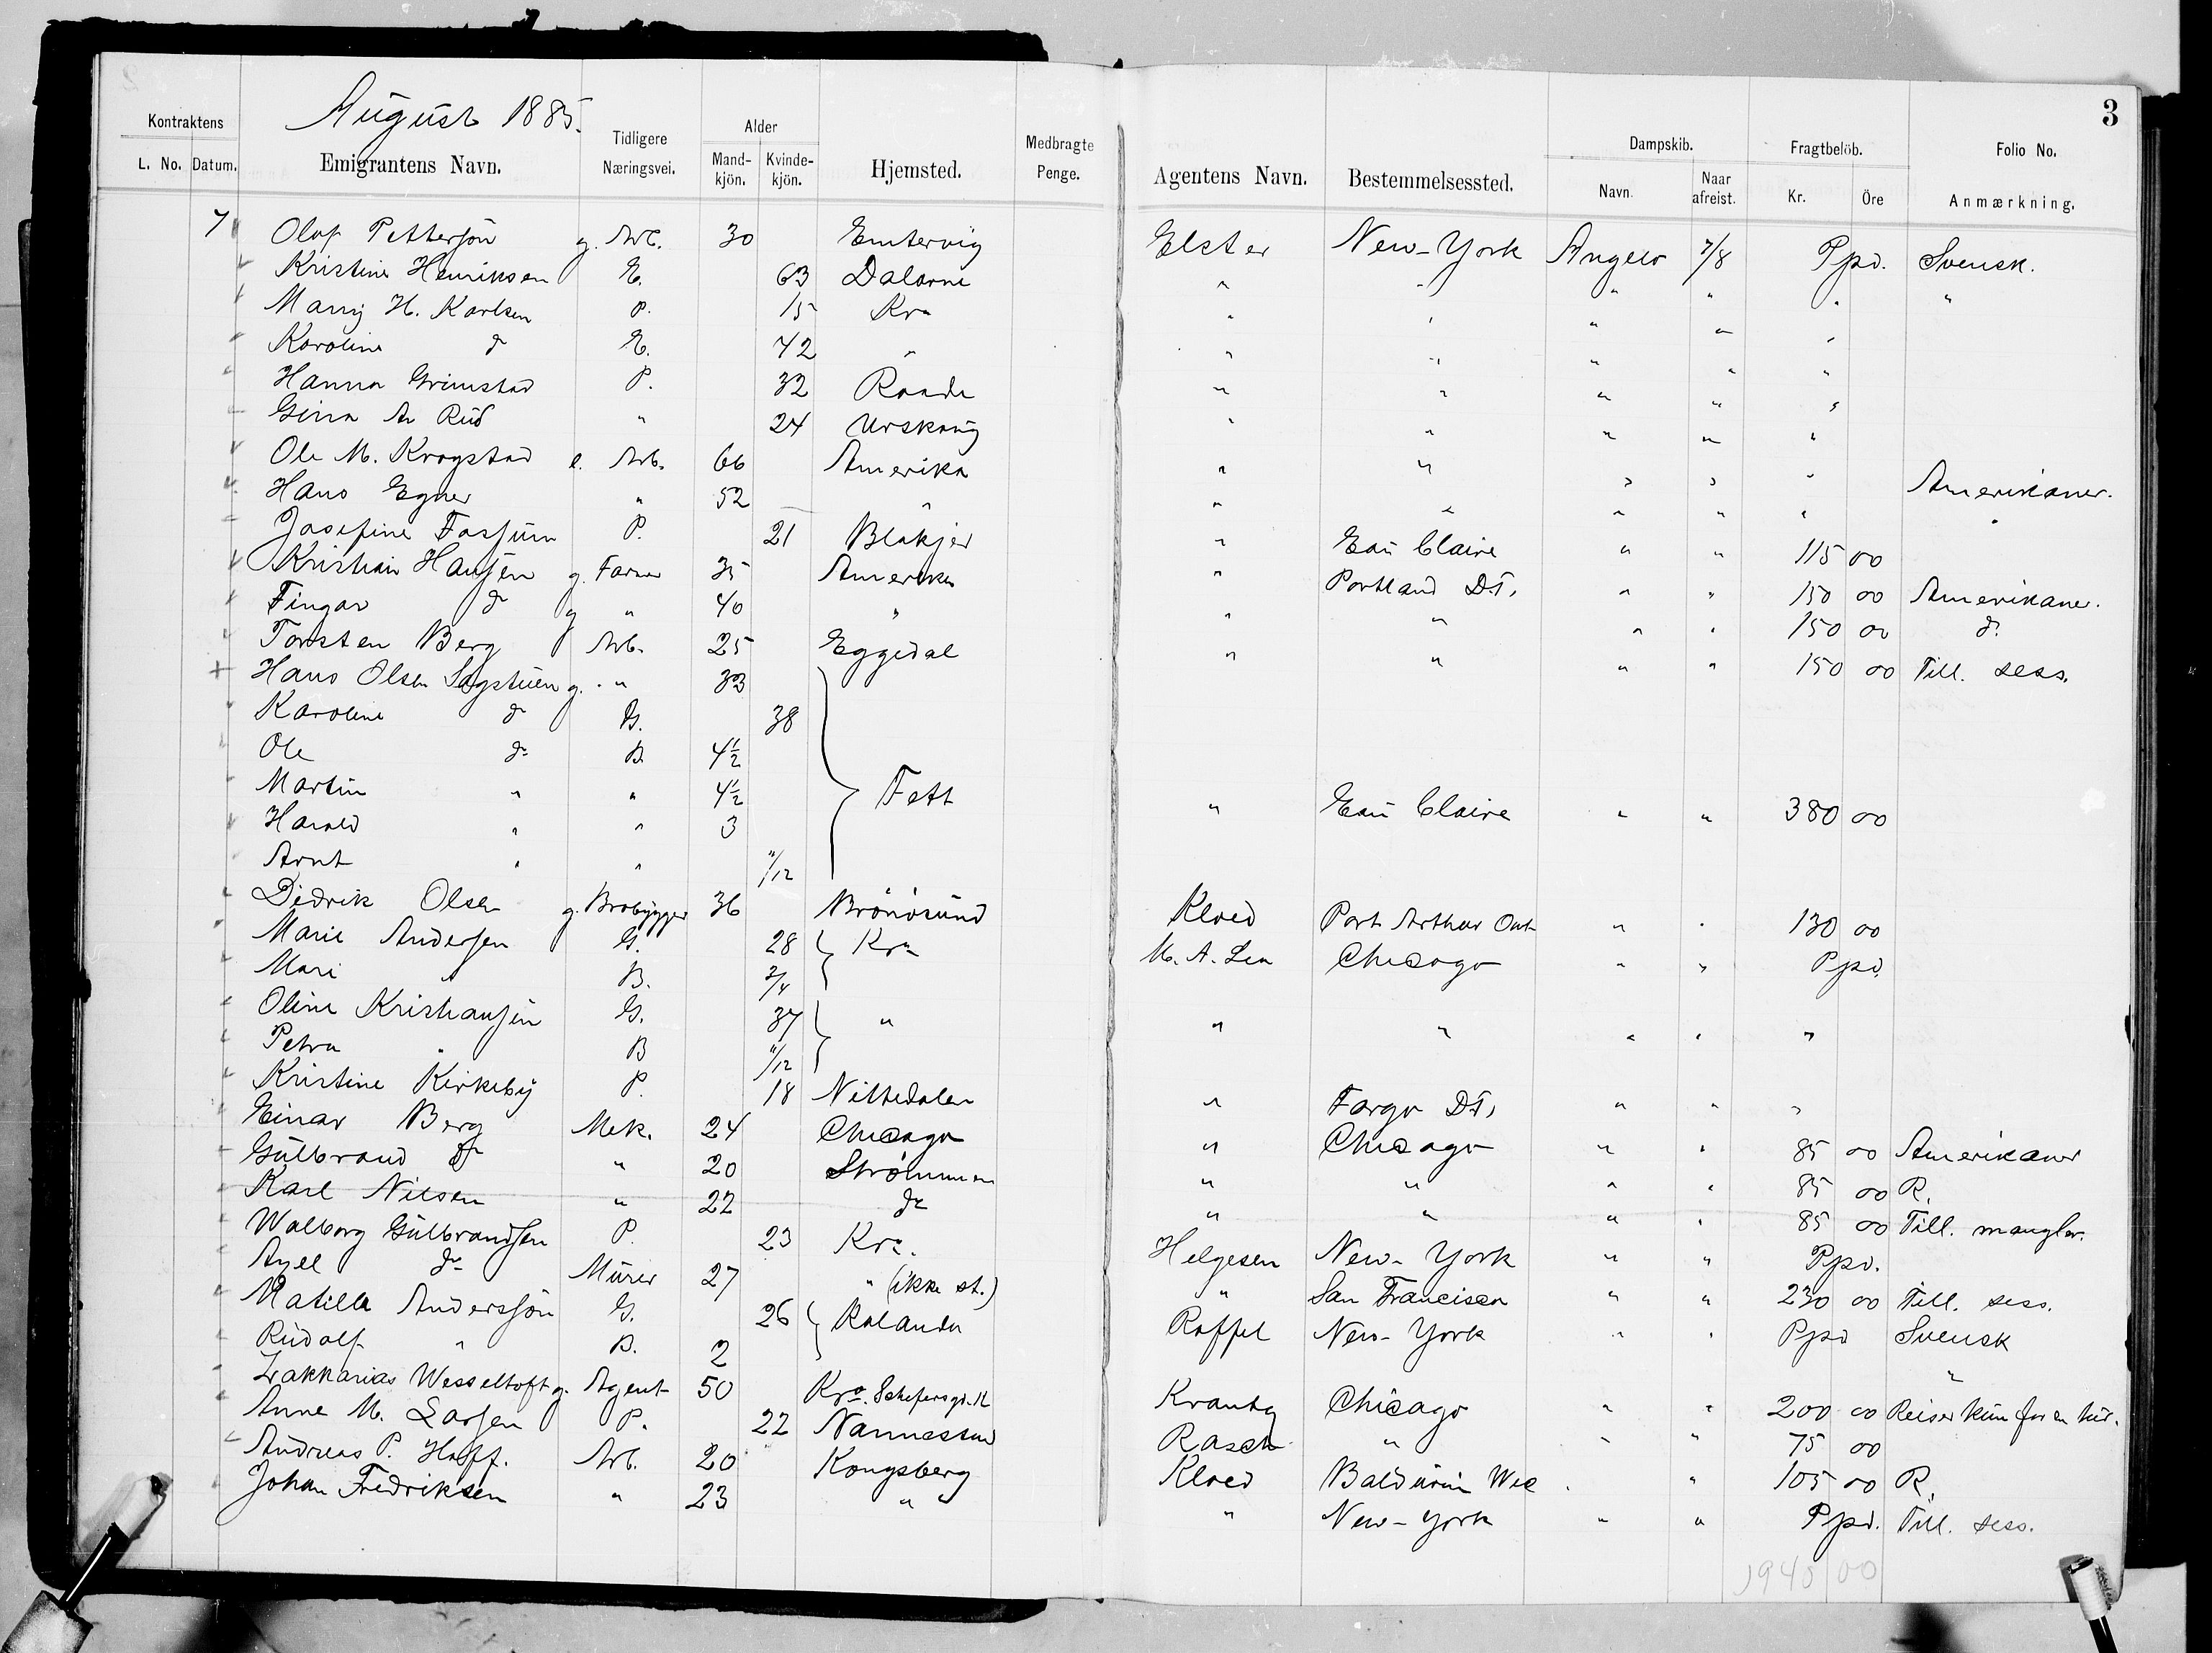 3
August 1885.
Kontraktens L. No. Datum. Emigrantens Navn. Tidligere Næringsvei. Alder Mand-kjön. Kvinde-kjön. Hjemsted. Medbragte Penge. Agentens Navn. Bestemmelsessted. Dampskib. Navn. Naar afreist. Fragtbelöb. Kr. Öre Folio No. Anmærkning.
7 Olof Pettersön g. Arb. 30 Emtervig Elster New-York Angelo 7/8 Ppd. Svensk.
Kristine Henriksen E. 63 Dalarne " " " " " "
Marig H. Karlsen P. 15 Kra " " " " "
Karoline do E. 42 " " " " " "
Hanna Grimstad P. 32 Raade " " " " "
Gina A. Rud " 24 Urskoug " " " " "
Ole M. Krogstad e. Arb. 66 Amerika " " " " " Amerikaner.
Hans Egner " 52 " " " " " " "
Josefine Fossum P. 21 Blakjer " Eau Claire " " 115 00
Kristian Hansen g. Farmer 35 Amerika " Portland D.T. " " 150 00 Amerikaner.
Fingar do g " 40 " " " " " 150 00 do
Torsten Berg Arb. 25 Eggedal " " " " 150 00 Till. sess.
Hans Olsen Sagstuen g. " 33
Karoline do G. 38
Ole do B. 4½
Martin " " 4½ Fett " Eau Claire " " 380 00
Harald " " 3
Arnt " " 11/12
Didrik Olsen g. Brobygger 36 Brönösund Kloed Port Arthur Ont " " 130 00
Marie Andersen G. 28 Kra M. A. Lea Chicago " " Ppd.
Mari " B. 3/4
Oline Kristiansen G. 37 " " " " " "
Petra " B 11/12
Kristine Kirkeby P. 18 Nittedalen " Fargo D.T. " " "
Einar Berg Mek. 24 Chicago " Chicago " " 85 00 Amerikaner
Gulbrand do " 20 Strömmen " " " " 85 00 R.
Karl Nilsen " 22 do " " " " 85 00 Till. mangler.
Walborg Gulbrandsen P. 23 Kra. Helgesen New-York " " Ppd.
Axel do Murer 27 " (ikke st.) " San Francisco " " 230 00 Till. sess.
Matilla Anderssön G. 26 Rolanda Roffel New-York " " Ppd Svensk
Rudolf " B. 2 "
Zakkarias Wesseltoft g. Agent 50 Kra. Schefersgd. 12 Krantz Chicago " " 200 00 Reiser kun for en tur.
Anne M. Larsen P. 22 Nannestad Rasch " " " 75 00
Andreas P. Hoff. Arb. 20 Kongsberg Kloed Balduin Wis " " 105 00 R.
Johan Fredriksen " 23 " " New-York " " Ppd. Till. sess.
1945 00